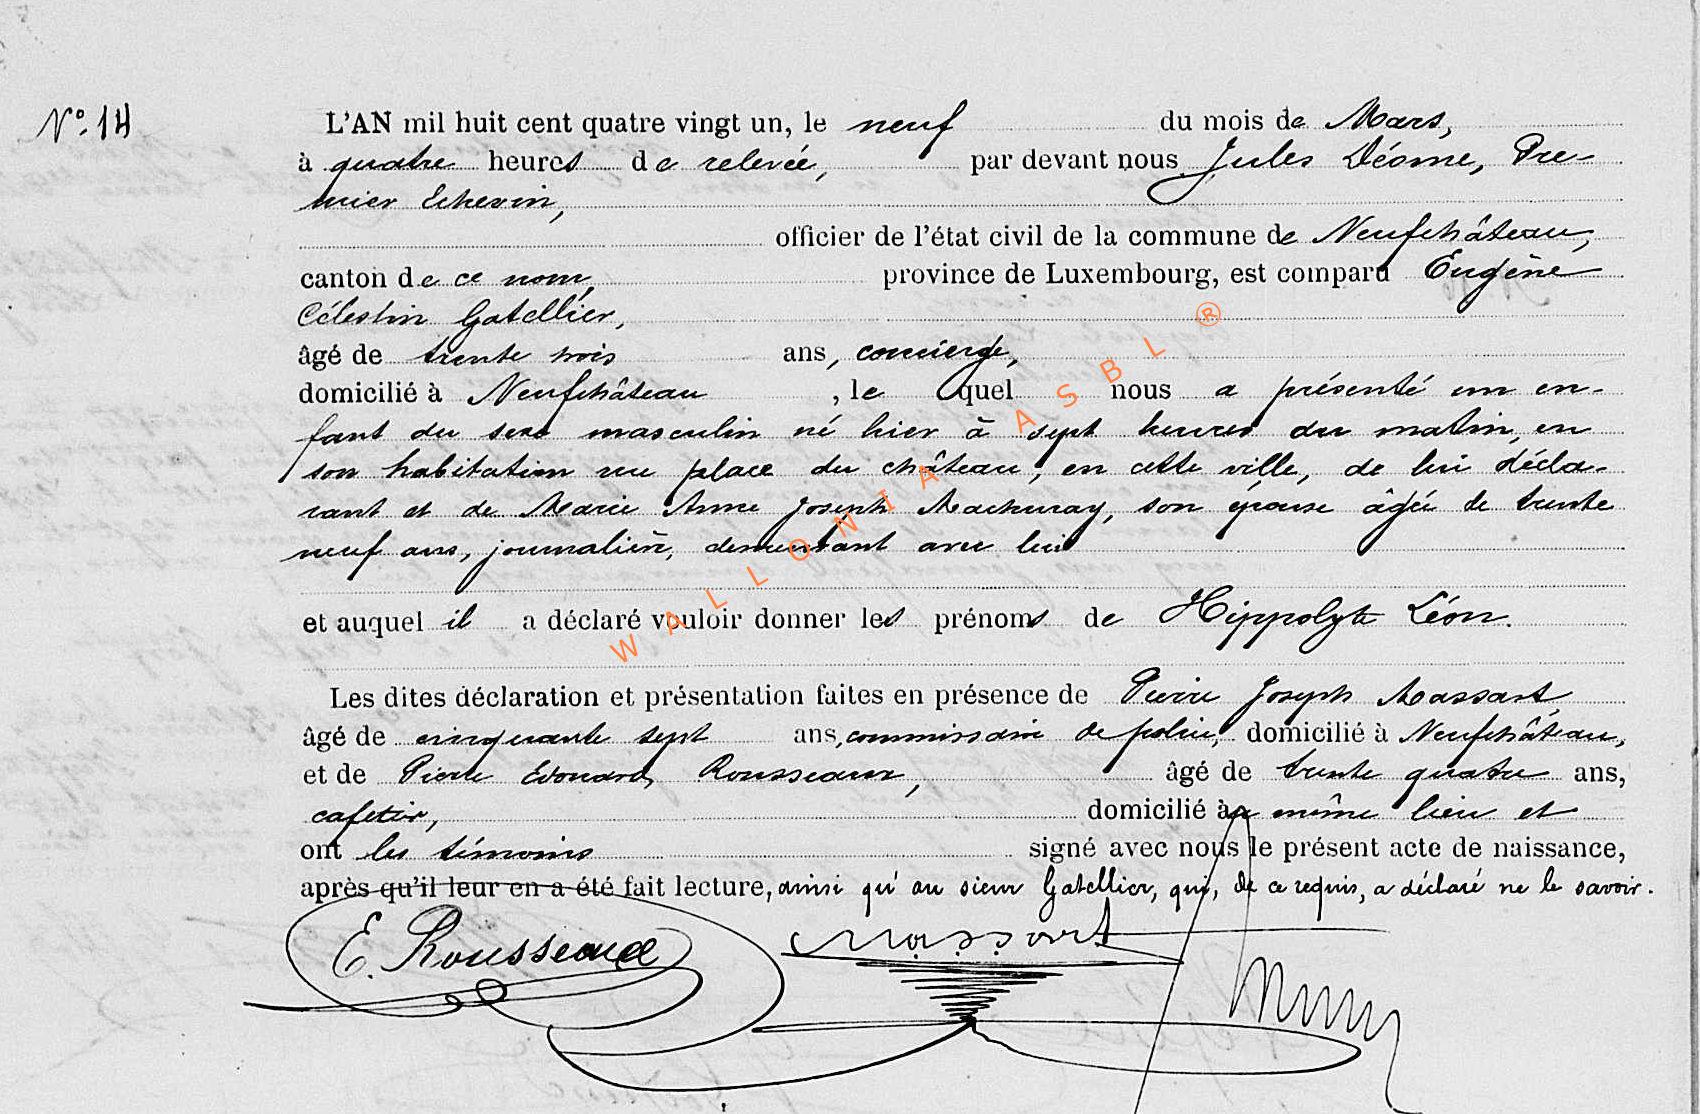 N° 14
L'AN mil huit cent quatre vingt un, le neuf du mois de Mars,
à quatre heures de relevée, par devant nous Jules Déome, Pre-
mier Echevin,
officier de l'état civil de la commune de Neufchâteau,
canton de ce nom, province de Luxembourg, est comparu Eugène
Célestin Gatellier,
âgé de trente trois ans, concierge,
domicilié à Neufchâteau, lequel nous a présenté un en-
fant du sexe masculin né hier à sept heures du matin, en
son habitation rue place du château, en cette ville, de lui décla-
rant et de Marie Anne Joseph Machuray, son épouse âgée de trente
neuf ans, journalière, demeurant avec lui
et auquel il a déclaré vouloir donner les prénoms de Hippolyte Léon.
Les dites déclaration et présentation faites en présence de Pierre Joseph Massart,
âgé de cinquante sept ans, commissaire de police, domicilié à Neufchâteau,
et de Pierre Edouard Rousseaux, âgé de trente quatre ans,
cafetier, domicilié au même lieu et
ont les témoins signé avec nous le présent acte de naissance,
après qu'il leur en a été fait lecture, ainsi qu'au sieur Gatellier, qui, de ce requis, a déclaré ne le savoir.
E. Rousseaux Massart
WALLONIA ASBL ®